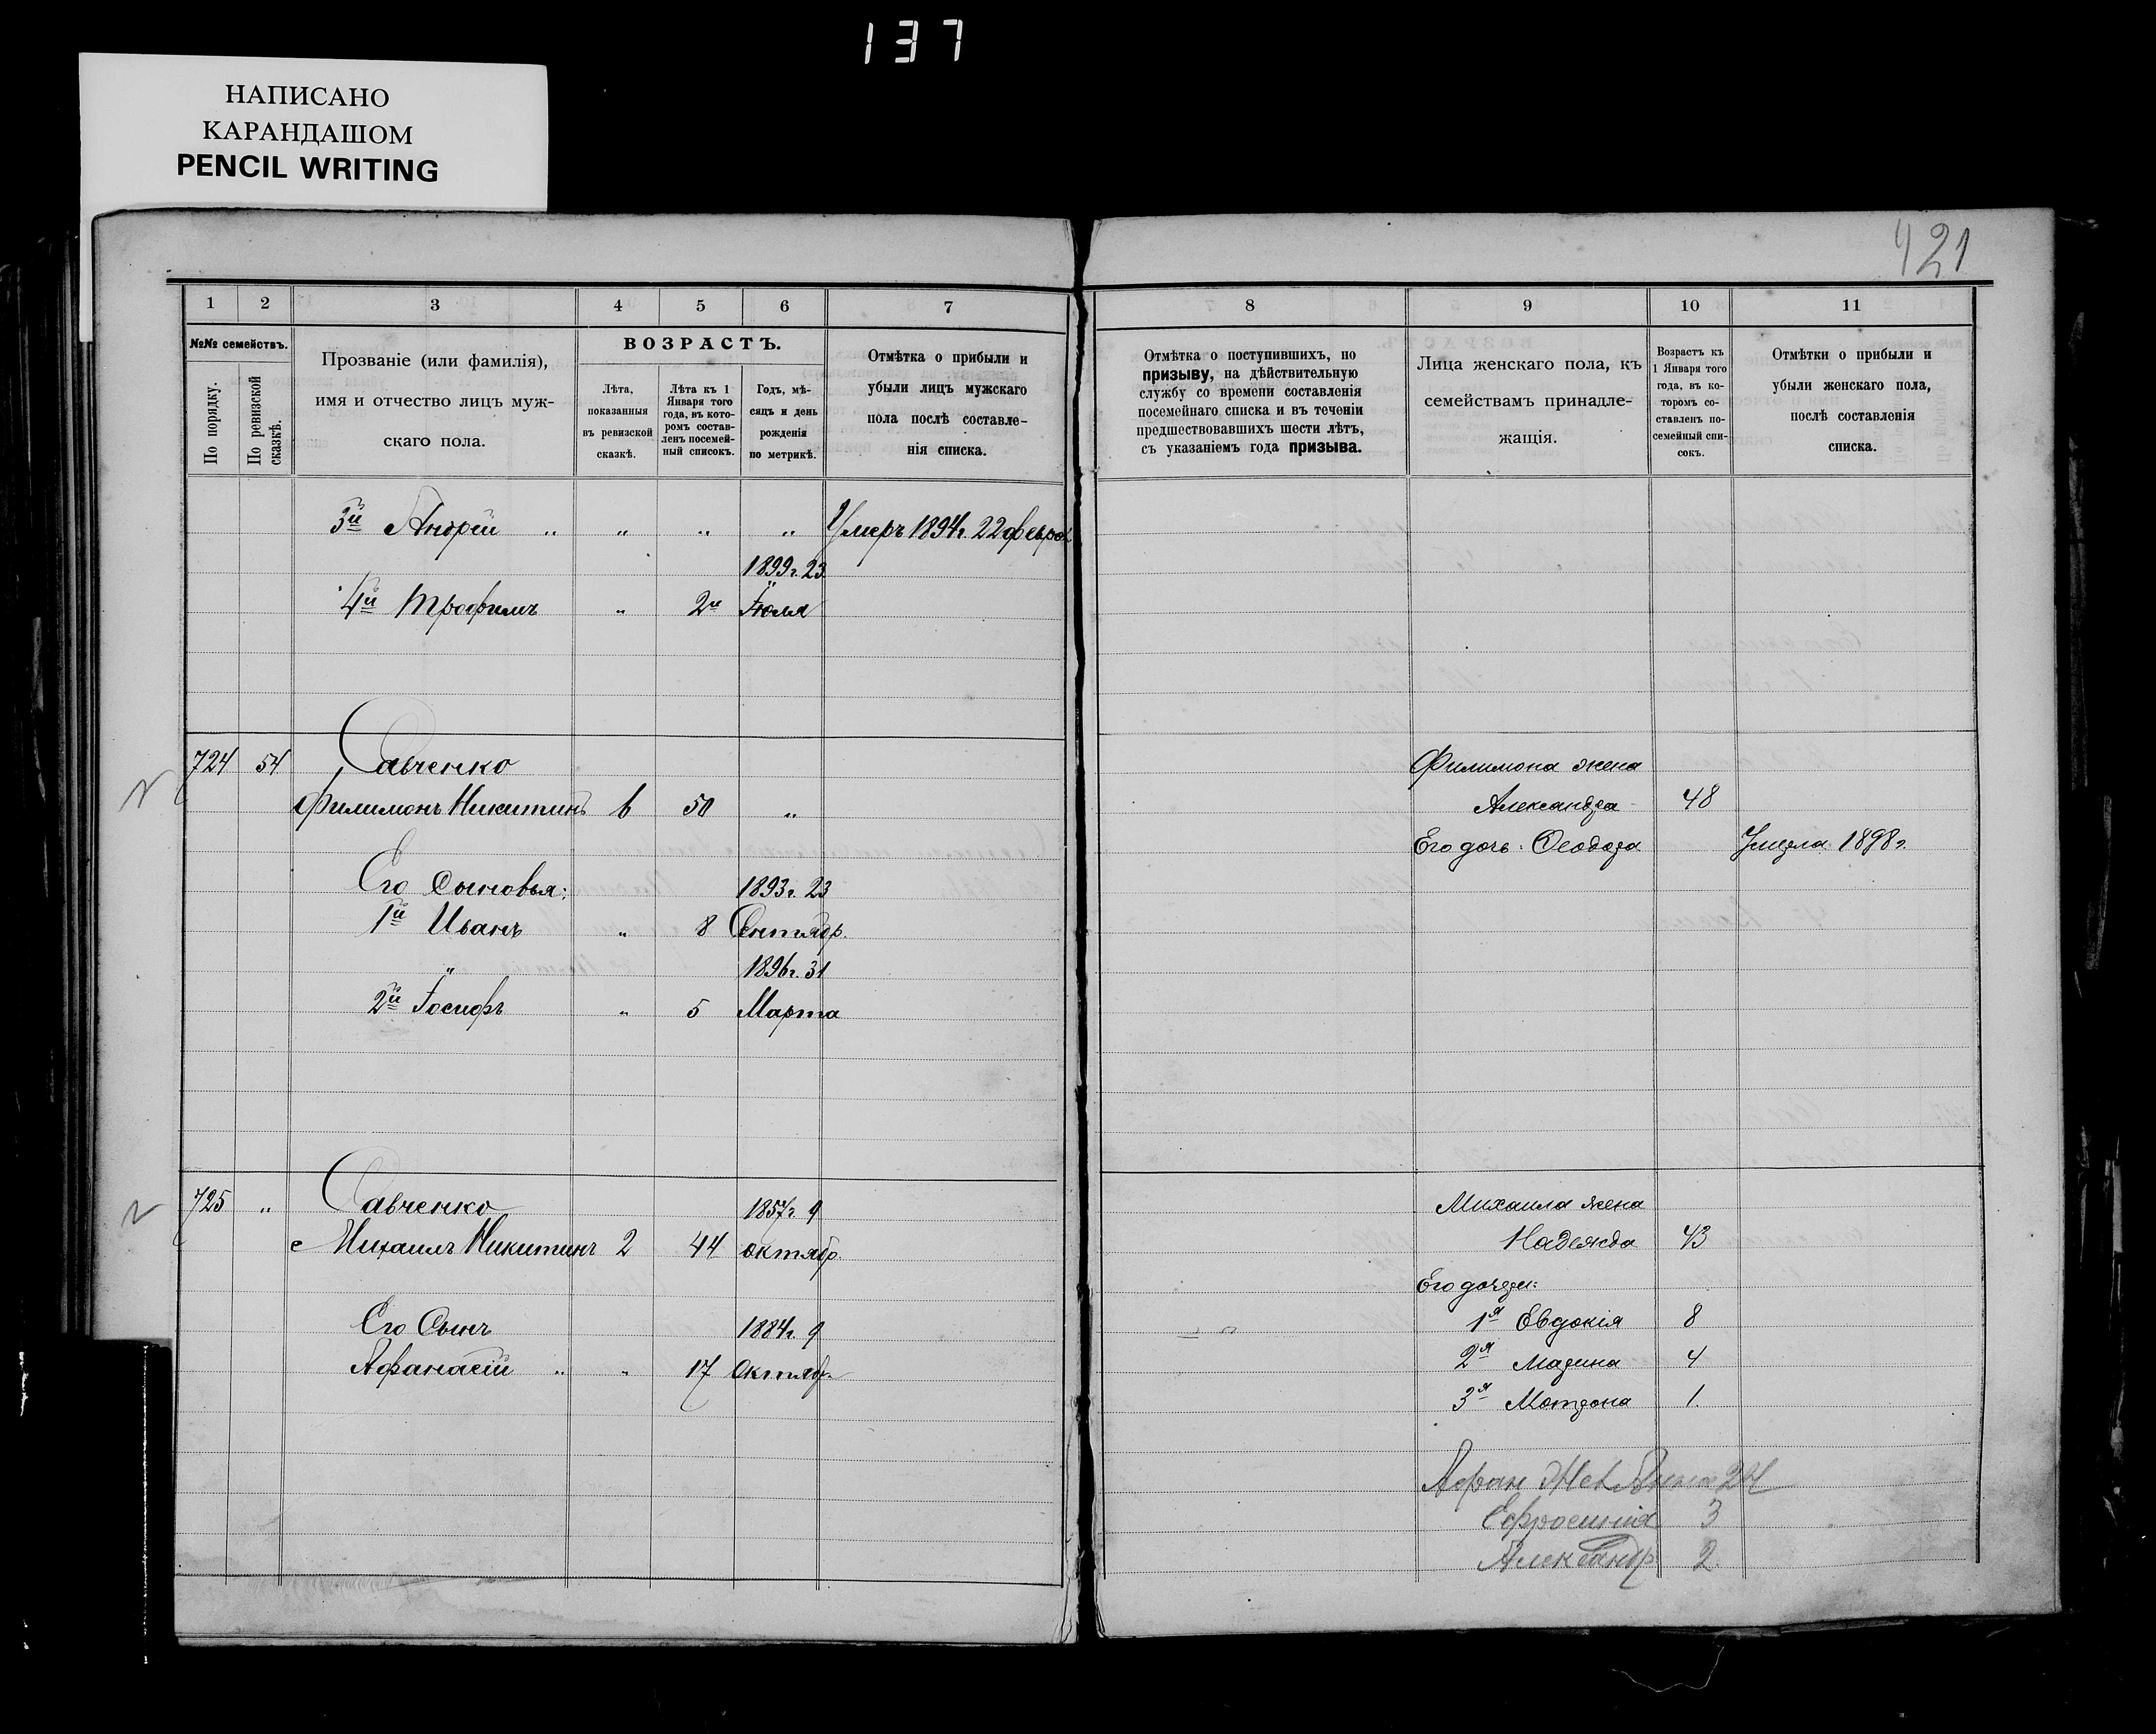 137
НАПИСАНО
КАРАНДАШОМ
PENCIL WRITING
421
1 2 3 4 5 6 7
№№ семействъ.
По порядку.
По ревизской сказкѣ.
Прозваніе (или фамилія),
имя и отчество лицъ муж-
скаго пола.
ВОЗРАСТЪ.
Лѣта,
показанныя
въ ревизской
сказкѣ.
Лѣта къ 1
Января того
года, въ кото-
ромъ состав-
ленъ посемей-
ный списокъ.
Годъ, мѣ-
сяцъ и день
рожденія
по метрикѣ.
Отмѣтка о прибыли и
убыли лицъ мужскаго
пола послѣ составле-
нія списка.
3й Андрей " " " " Умеръ 1894г. 22 феврал
1899г. 23
4й Трофимъ " 2 Іюля
724 54 Савченко
Филимонъ Никитинъ 6 50 "
Его Сыновья: 1893г. 23
1й Иванъ " 8 Сентябр.
1896г. 31
2й Іосифъ " 5 Марта
725 " Савченко 1857г. 9
Михаилъ Никитинъ 2 44 октябр.
Его Сынъ 1884г. 9
Афанасій " " 17 Октябр.
8 9 10 11
Отмѣтка о поступившихъ, по
призыву, на дѣйствительную
службу со времени составленія
посемейнаго списка и въ теченіи
предшествовавшихъ шести лѣтъ,
съ указаніемъ года призыва.
Лица женскаго пола, къ
семействамъ принадле-
жащія.
Возрастъ къ
1 Января того
года, въ ко-
торомъ со-
ставленъ по-
семейный спи-
сокъ.
Отмѣтки о прибыли и
убыли женскаго пола,
послѣ составленія
списка.
Филимона жена
Александра 48
Его дочь: Ѳеодора Умерла 1898г.
Михаила жена
Надежда 43
Его дочери:
1я Евдокія 8
2я Марина 4
3я Мотрона 1.
Афан жена 24
Ефросинія 3
Александр 2